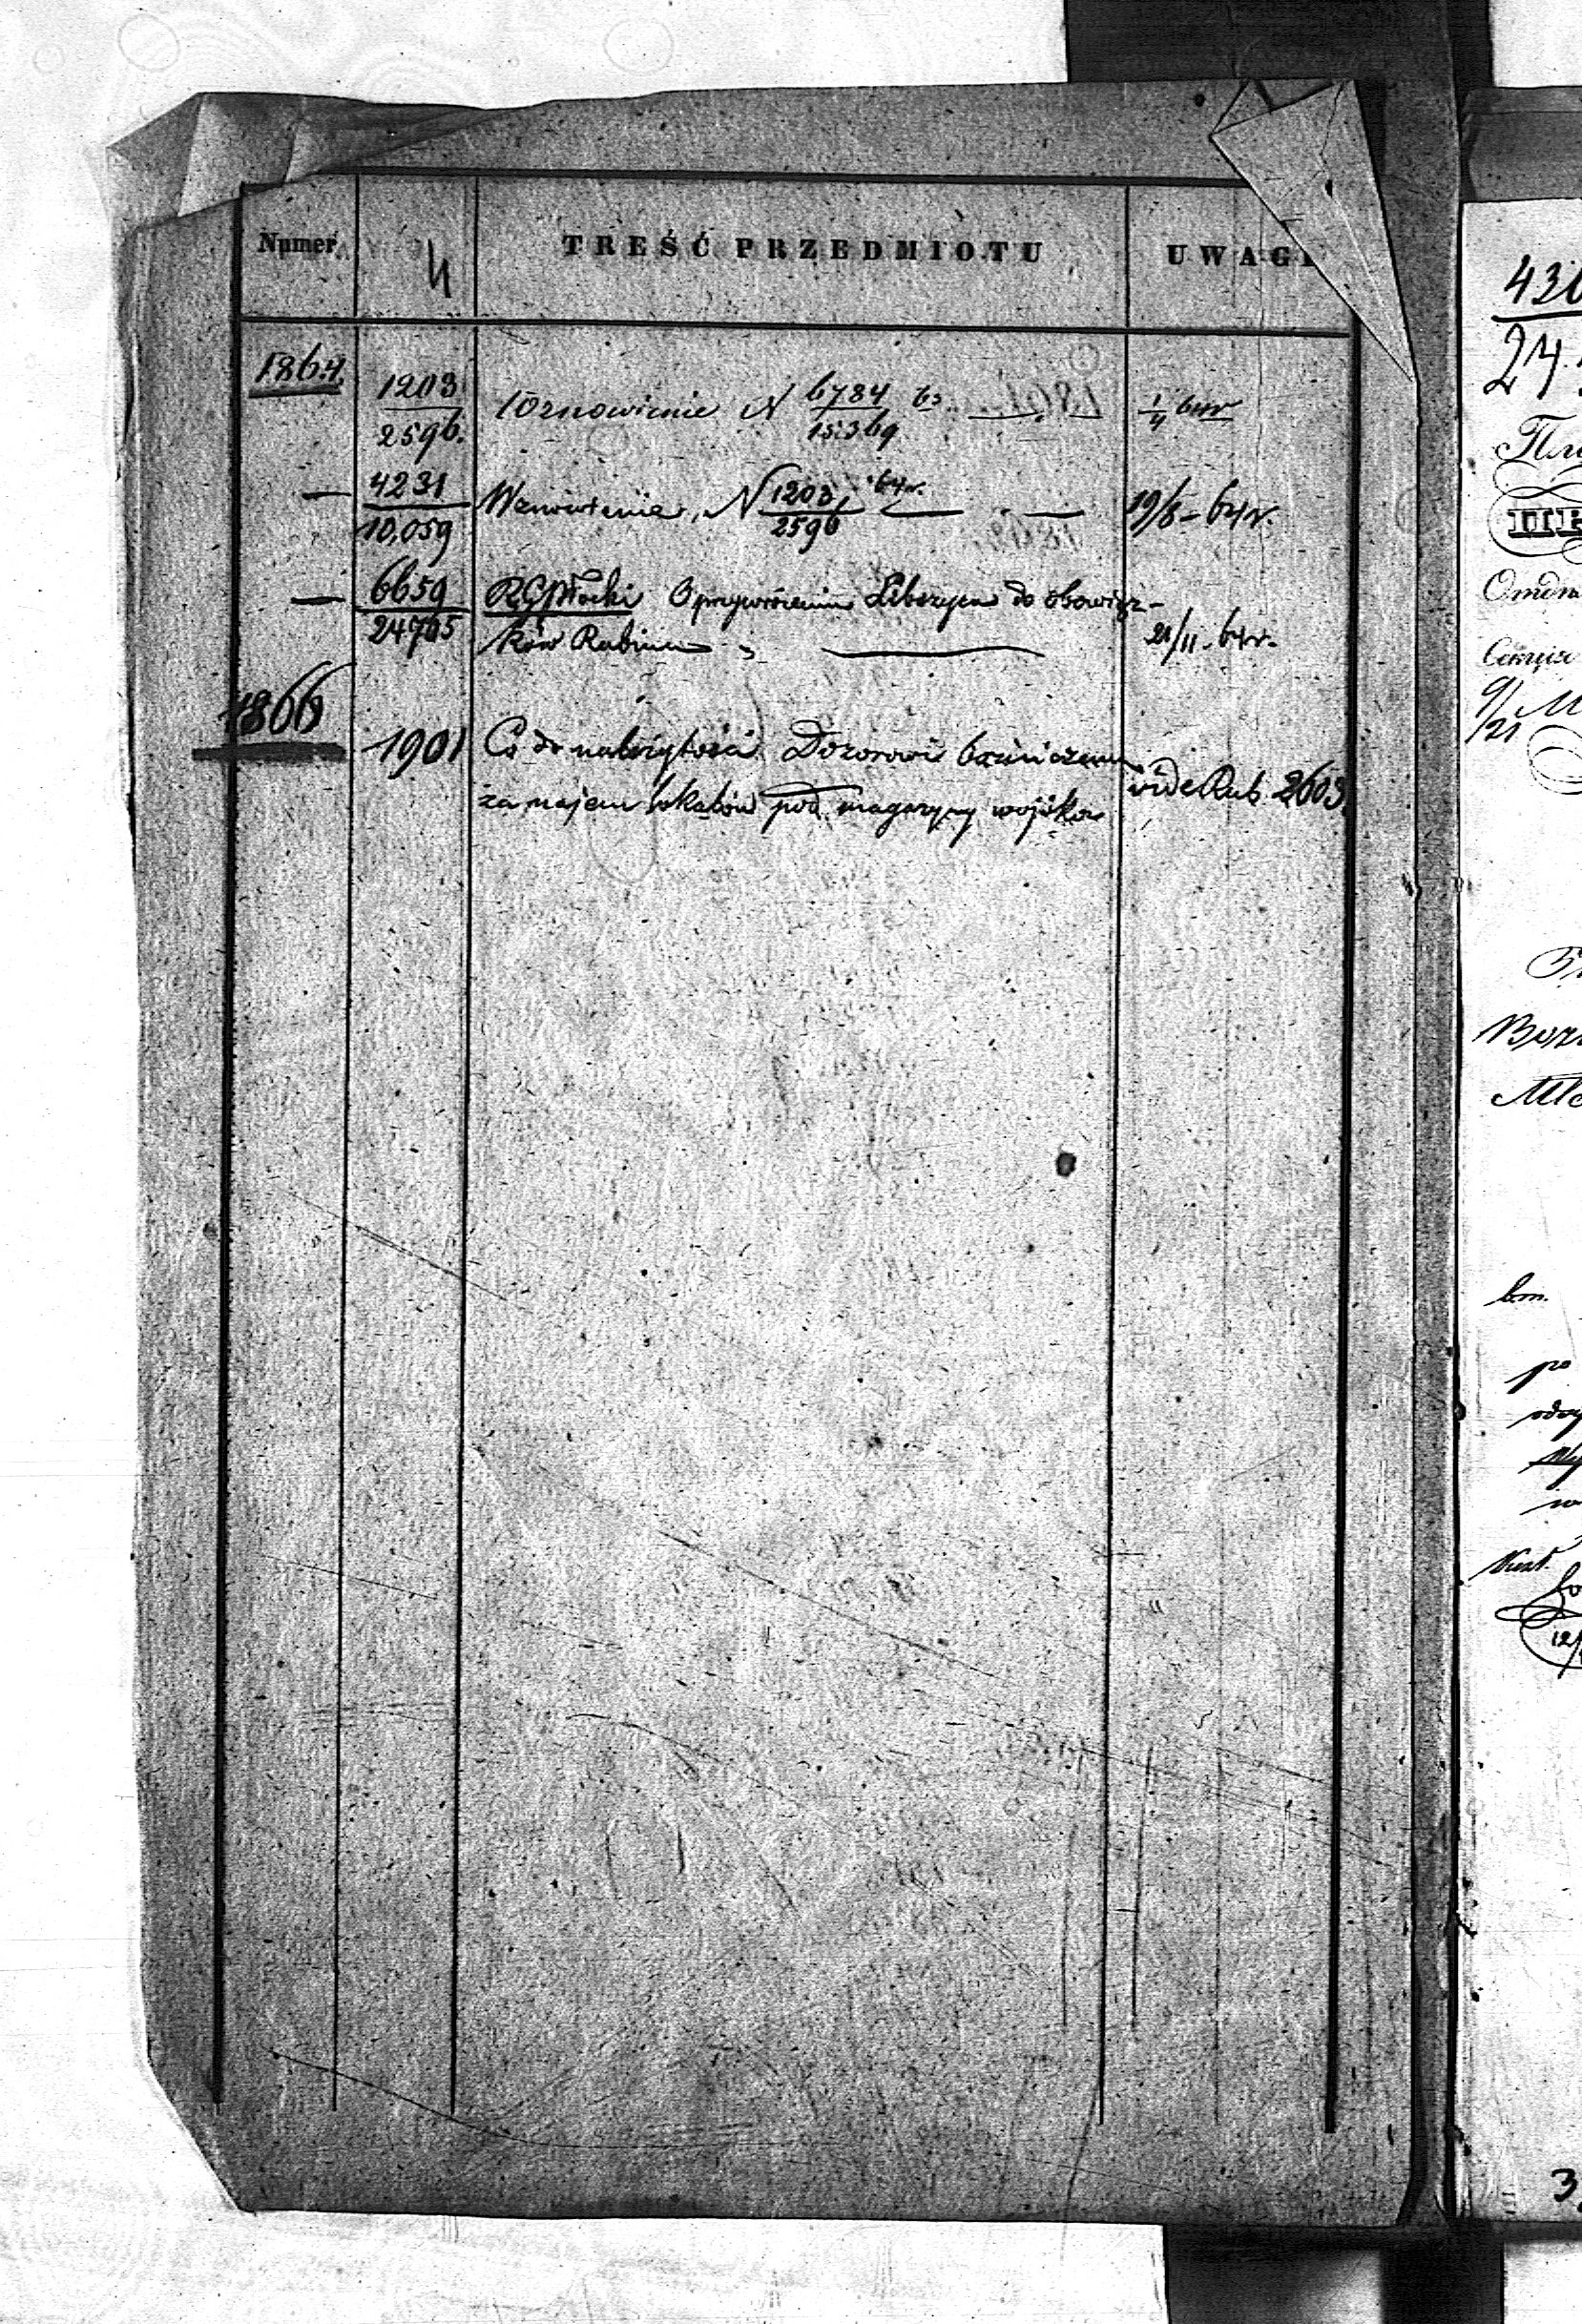 Numer
4
TREŚĆ PRZEDMIOTU
UWAGI
1864.
1203
2596.
Wznowienie N 6784/15369 63
1/4 64 r
—
4231
10,059
Wznowienie, N 1203/2596 64 r. — —
19/8 – 64 r.
—
6659
24705
RGPłocki O przywróceniu Libszyca do obowiąz-
ków Rabina
21/11. 64 r.
1866
1901
Co do należytości Dozorowi bożniczemu
za najem lokalów pod magazyny wojska
vide Rub. 2603.
24
Отдѣ
Секція
9/21
bm.
po
12/
3